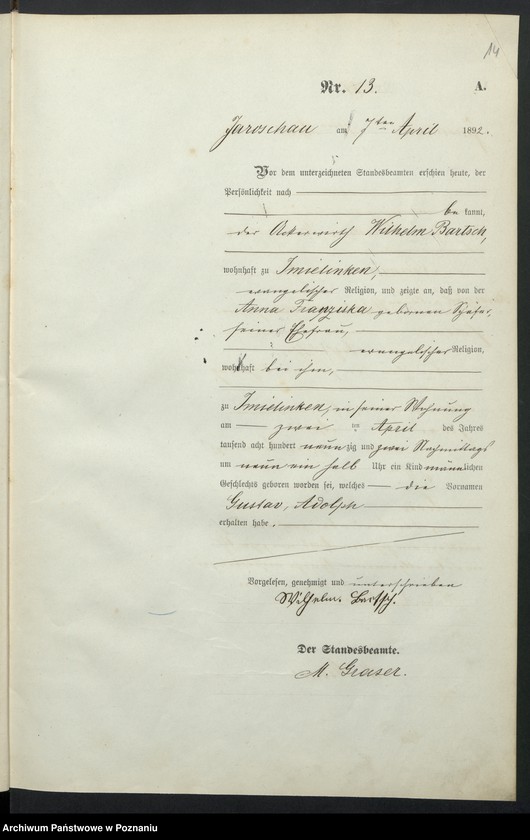 14
Nr. 13. A.
Jaroschau am 7ten April 1892.
Vor dem unterzeichneten Standesbeamten erschien heute, der
Persönlichkeit nach
be kannt,
der Ackerwirth Wilhelm Bartsch,
wohnhaft zu Imielinken,
evangelischer Religion, und zeigte an, daß von der
Anna Franziska geborenen Schäfer,
seiner Ehefrau,
evangelischer Religion,
wohnhaft bei ihm,
zu Imielinken, in seiner Wohnung
am zwei ten April des Jahres
tausend acht hundert neunzig und zwei Nachmittags
um neun ein halb Uhr ein Kind männlichen
Geschlechts geboren worden sei, welches die Vornamen
Gustav, Adolph
erhalten habe.
Vorgelesen, genehmigt und unterschrieben
Wilhelm. Bartsch.
Der Standesbeamte.
M. Graser.
Archiwum Państwowe w Poznaniu